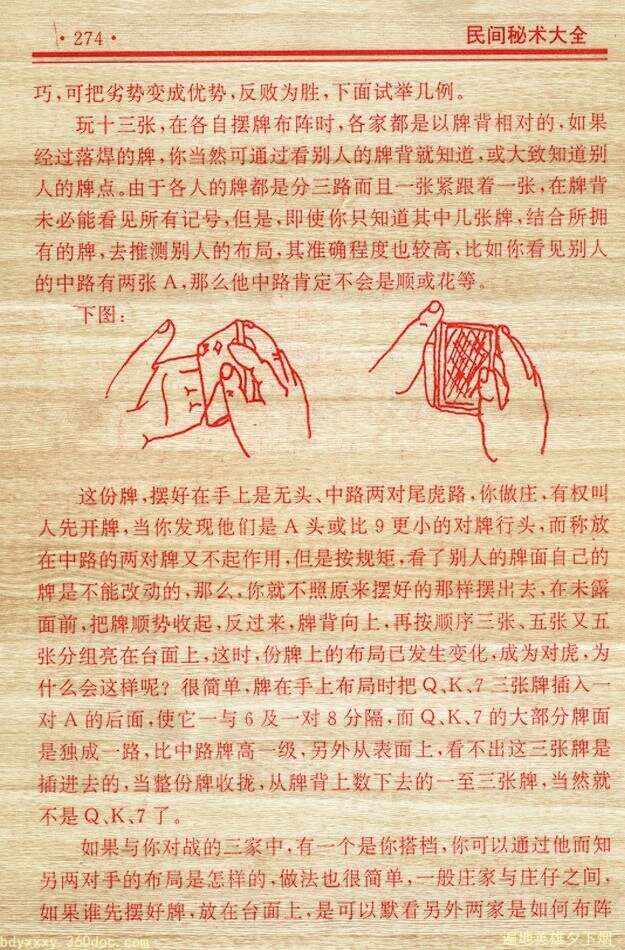 ·274·
民间秘术大全
巧,可把劣势变成优势,反败为胜,下面试举几例。
玩十三张,在各自摆牌布阵时,各家都是以牌背相对的,如果
经过落焊的牌,你当然可通过看别人的牌背就知道,或大致知道别
人的牌点。由于各人的牌都是分三路而且一张紧跟着一张,在牌背
未必能看见所有记号,但是,即使你只知道其中几张牌,结合所拥
有的牌,去推测别人的布局,其准确程度也较高,比如你看见别人
的中路有两张A,那么他中路肯定不会是顺或花等。
下图:
这份牌,摆好在手上是无头、中路两对尾虎路,你做庄,有权叫
人先开牌,当你发现他们是A头或比9更小的对牌行头,而称放
在中路的两对牌又不起作用,但是按规矩,看了别人的牌面自己的
牌是不能改动的,那么,你就不照原来摆好的那样摆出去,在未露
面前,把牌顺势收起,反过来,牌背向上,再按顺序三张、五张又五
张分组亮在台面上,这时,份牌上的布局已发生变化,成为对虎,为
什么会这样呢?很简单,牌在手上布局时把Q、K、7三张牌插入一
对A的后面,使它一与6及一对8分隔,而Q、K、7的大部分牌面
是独成一路,比中路牌高一级,另外从表面上,看不出这三张牌是
插进去的,当整份牌收拢,从牌背上数下去的一至三张牌,当然就
不是Q、K、7了。
如果与你对战的三家中,有一个是你搭档,你可以通过他而知
另两对手的布局是怎样的,做法也很简单,一般庄家与庄仔之间,
如果谁先摆好牌,放在台面上,是可以默看另外两家是如何布阵
bdyxxxy.360doc.com